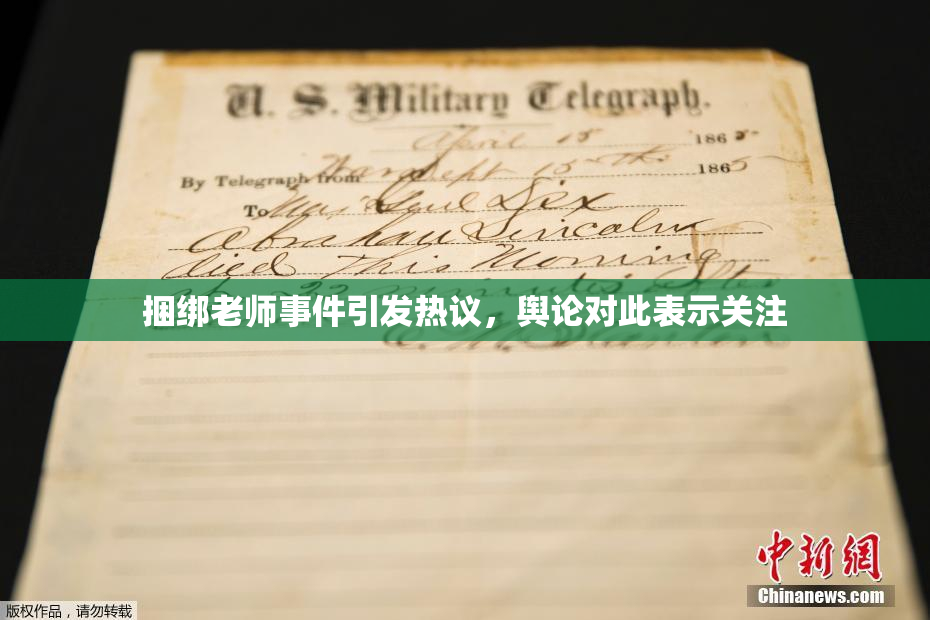 U. S. Military Telegraph.
April 15 1865
By Telegraph from War Dept 15th 1865
To Maj Genl Dix
Abraham Lincoln
died This Morning
22 minutes after
捆绑老师事件引发热议，舆论对此表示关注
E. M. Stanton
中新网
Chinanews.com
版权作品，请勿转载